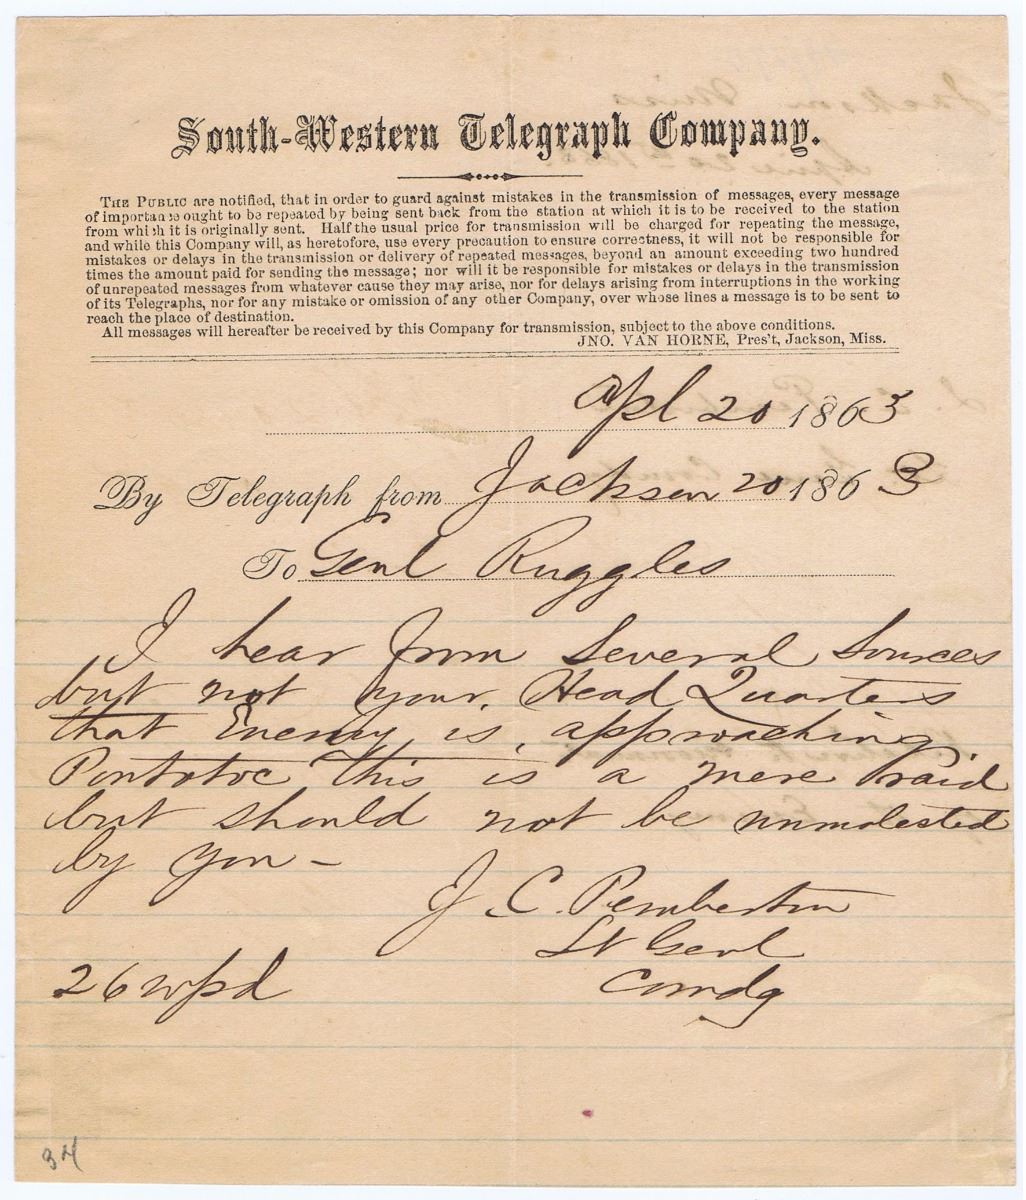 South-Western Telegraph Company.
THE PUBLIC are notified, that in order to guard against mistakes in the transmission of messages, every message
of importance ought to be repeated by being sent back from the station at which it is to be received to the station
from which it is originally sent. Half the usual price for transmission will be charged for repeating the message,
and while this Company will, as heretofore, use every precaution to ensure correctness, it will not be responsible for
mistakes or delays in the transmission or delivery of repeated messages, beyond an amount exceeding two hundred
times the amount paid for sending the message; nor will it be responsible for mistakes or delays in the transmission
of unrepeated messages from whatever cause they may arise, nor for delays arising from interruptions in the working
of its Telegraphs, nor for any mistake or omission of any other Company, over whose lines a message is to be sent to
reach the place of destination.
All messages will hereafter be received by this Company for transmission, subject to the above conditions.
JNO. VAN HORNE, Pres't, Jackson, Miss.
Apl 20 1863
By Telegraph from Jackson 20 1863
To Genl Ruggles
I hear from Several Sources
but not your Head Quarters
that Enemy is approaching
Pontotoc this is a mere Raid
but should not be unmolested
by you -
J. C. Pemberton
Lt Genl
Comdg
26 wpd
34